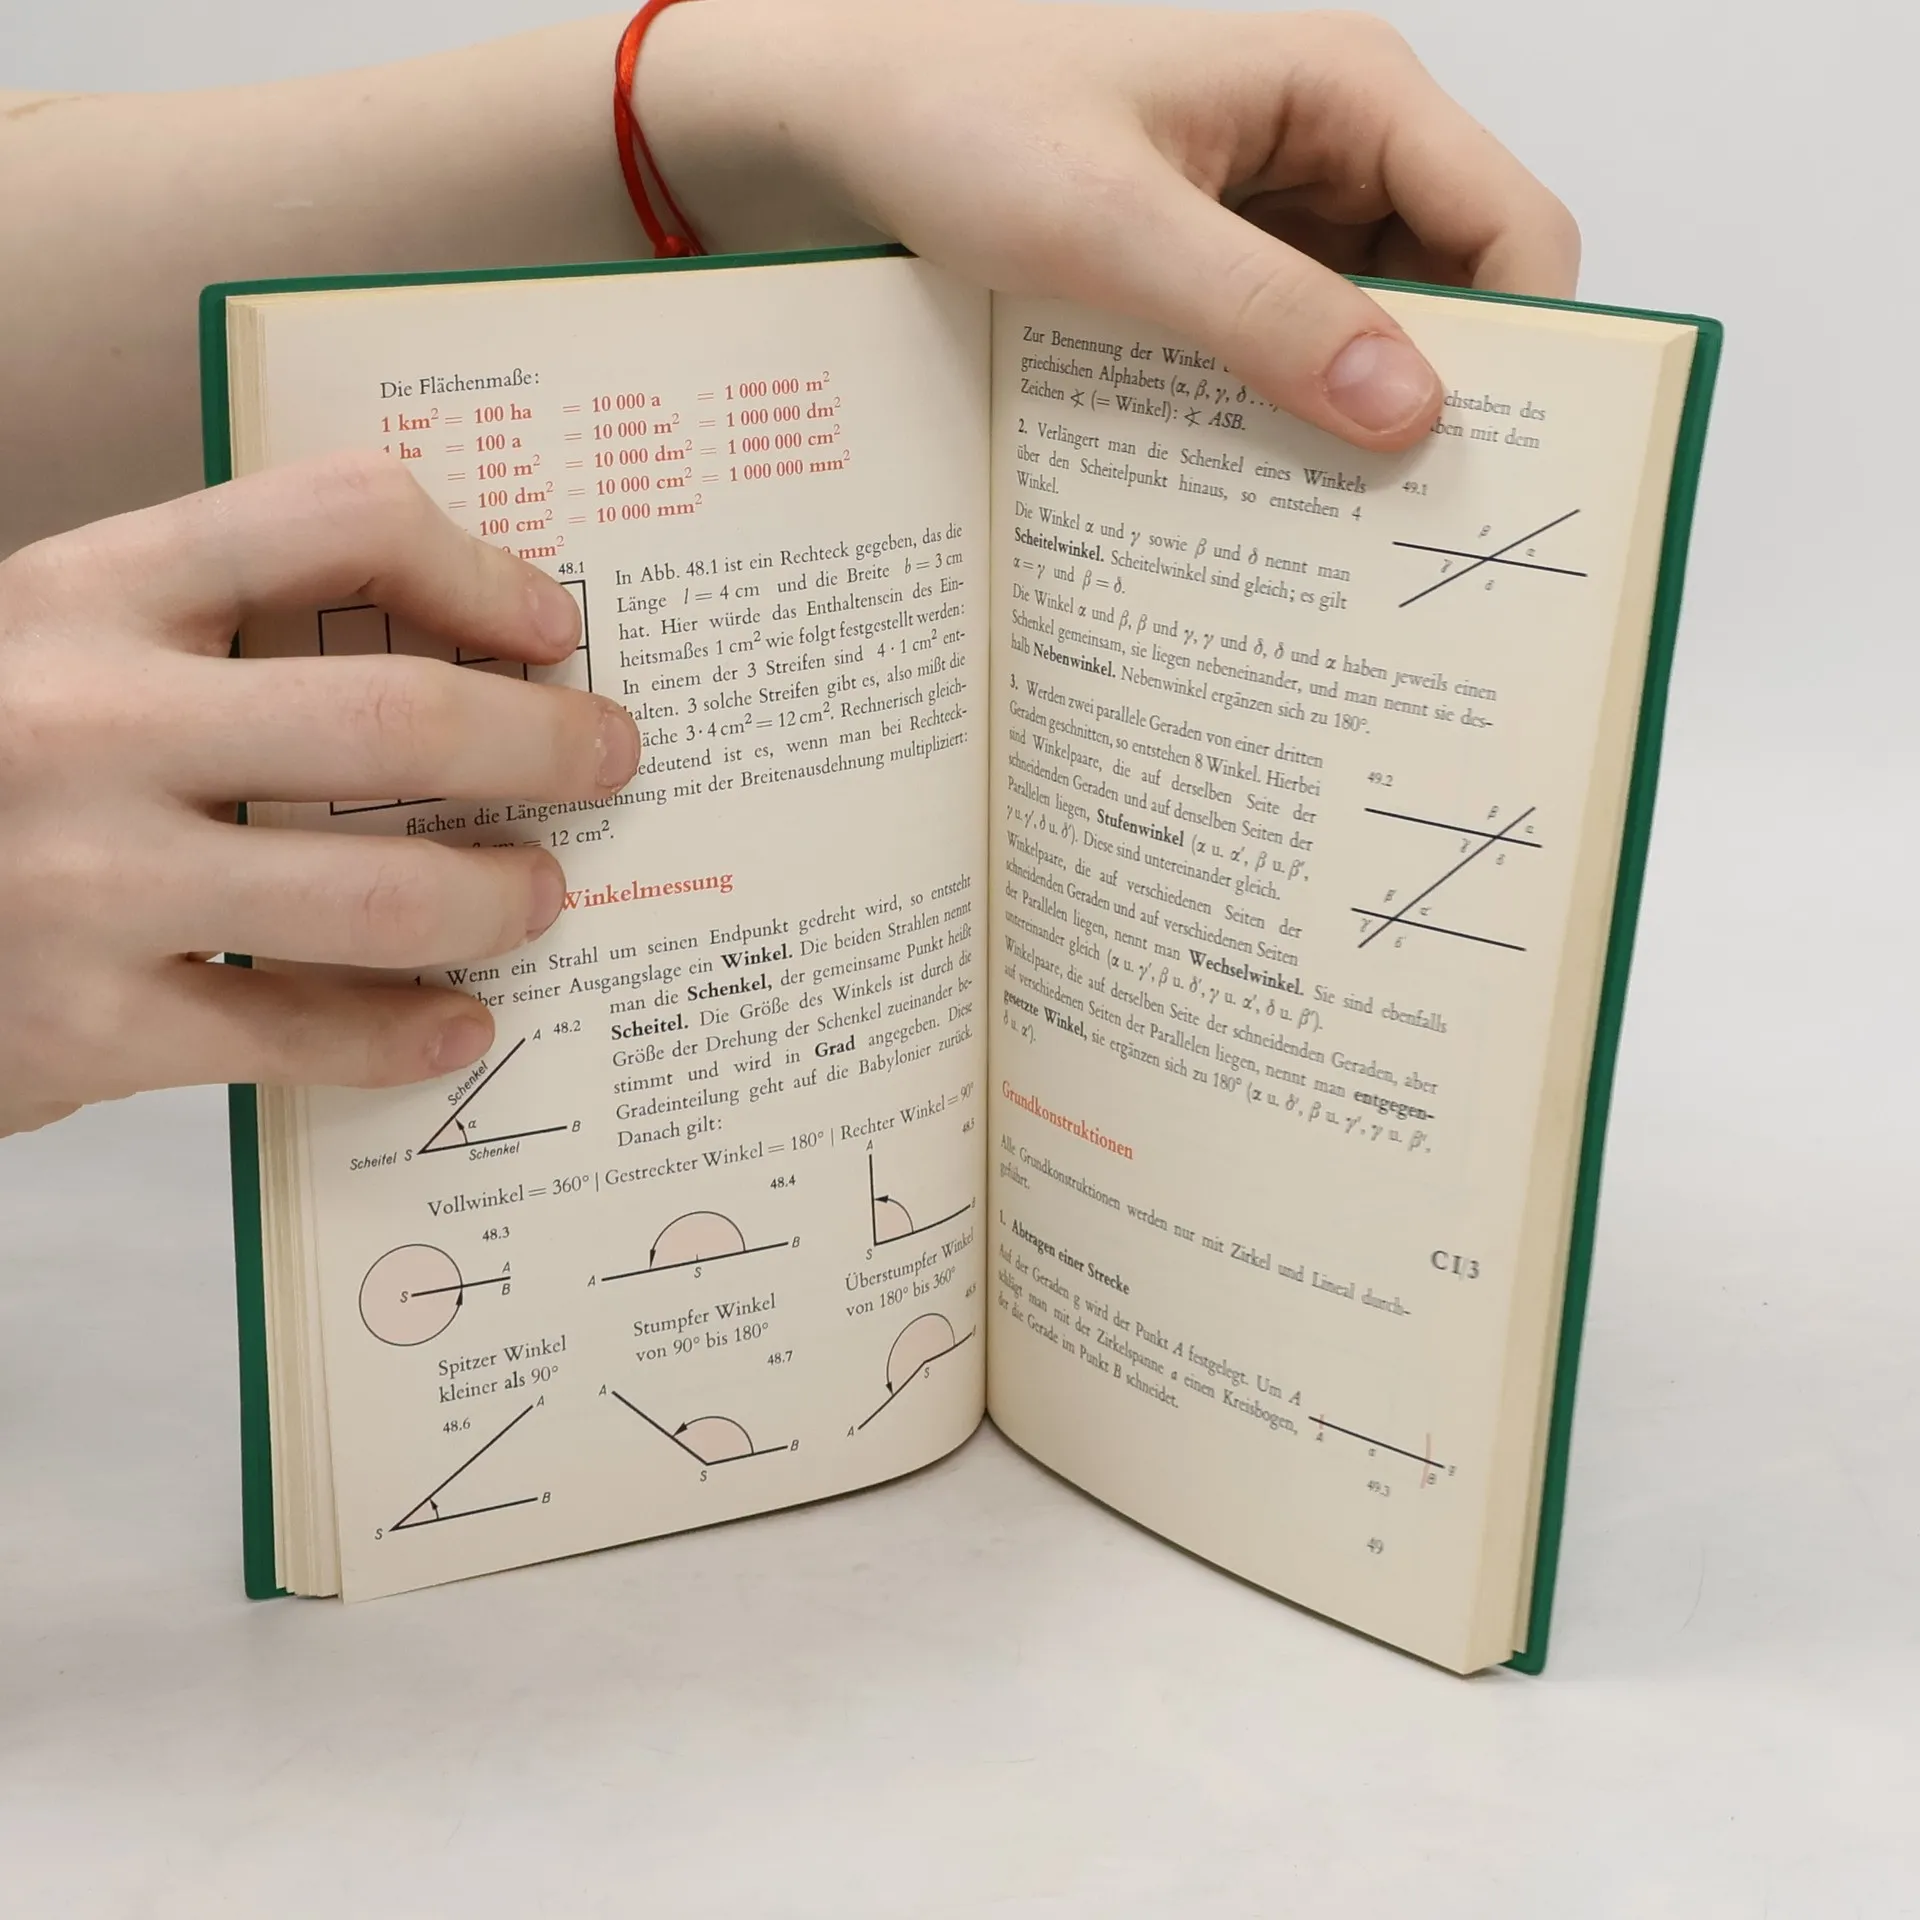 Die Flächenmaße:
1 km² = 100 ha = 10 000 a = 1 000 000 m²
1 ha = 100 a = 10 000 m² = 1 000 000 dm²
= 100 m² = 10 000 dm² = 1 000 000 cm²
= 100 dm² = 10 000 cm² = 1 000 000 mm²
100 cm² = 10 000 mm²
mm²
48.1
In Abb. 48.1 ist ein Rechteck gegeben, das die
Länge l = 4 cm und die Breite b = 3 cm
hat. Hier würde das Enthaltensein des Ein-
heitsmaßes 1 cm² wie folgt festgestellt werden:
In einem der 3 Streifen sind 4 · 1 cm² ent-
halten. 3 solche Streifen gibt es, also mißt die
äche 3 · 4 cm² = 12 cm². Rechnerisch gleich-
bedeutend ist es, wenn man bei Rechteck-
flächen die Längenausdehnung mit der Breitenausdehnung multipliziert:
= 12 cm².
Winkelmessung
1. Wenn ein Strahl um seinen Endpunkt gedreht wird, so entsteht
ber seiner Ausgangslage ein Winkel. Die beiden Strahlen nennt
man die Schenkel, der gemeinsame Punkt heißt
Scheitel. Die Größe des Winkels ist durch die
Größe der Drehung der Schenkel zueinander be-
stimmt und wird in Grad angegeben. Diese
Gradeinteilung geht auf die Babylonier zurück.
Danach gilt:
A 48.2
Schenkel
α
B
Scheitel S
Schenkel
Vollwinkel = 360° | Gestreckter Winkel = 180° | Rechter Winkel = 90°
48.3
48.4
48.5
S A B
A S B
A S B
Spitzer Winkel
kleiner als 90°
Stumpfer Winkel
von 90° bis 180°
Überstumpfer Winkel
von 180° bis 360°
48.6
48.7
48.8
A S B
A S B
A S
Zur Benennung der Winkel chstaben des
griechischen Alphabets (α, β, γ, δ ... ben mit dem
Zeichen ∢ (= Winkel): ∢ ASB.
2. Verlängert man die Schenkel eines Winkels
über den Scheitelpunkt hinaus, so entstehen 4
Winkel.
49.1
β α γ δ
Die Winkel α und γ sowie β und δ nennt man
Scheitelwinkel. Scheitelwinkel sind gleich; es gilt
α = γ und β = δ.
Die Winkel α und β, β und γ, γ und δ, δ und α haben jeweils einen
Schenkel gemeinsam, sie liegen nebeneinander, und man nennt sie des-
halb Nebenwinkel. Nebenwinkel ergänzen sich zu 180°.
3. Werden zwei parallele Geraden von einer dritten
Geraden geschnitten, so entstehen 8 Winkel. Hierbei
sind Winkelpaare, die auf derselben Seite der
schneidenden Geraden und auf denselben Seiten der
Parallelen liegen, Stufenwinkel (α u. α′, β u. β′,
γ u. γ′, δ u. δ′). Diese sind untereinander gleich.
49.2
β α
γ δ
β′ α′
γ′ δ′
Winkelpaare, die auf verschiedenen Seiten der
schneidenden Geraden und auf verschiedenen Seiten
der Parallelen liegen, nennt man Wechselwinkel. Sie sind ebenfalls
untereinander gleich (α u. γ′, β u. δ′, γ u. α′, δ u. β′).
Winkelpaare, die auf derselben Seite der schneidenden Geraden, aber
auf verschiedenen Seiten der Parallelen liegen, nennt man entgegen-
gesetzte Winkel, sie ergänzen sich zu 180° (α u. δ′, β u. γ′, γ u. β′,
δ u. α′).
Grundkonstruktionen
Alle Grundkonstruktionen werden nur mit Zirkel und Lineal durch-
geführt.
C I/3
1. Abtragen einer Strecke
Auf der Geraden g wird der Punkt A festgelegt. Um A
schlägt man mit der Zirkelspanne a einen Kreisbogen,
der die Gerade im Punkt B schneidet.
A a B g
49.3
49